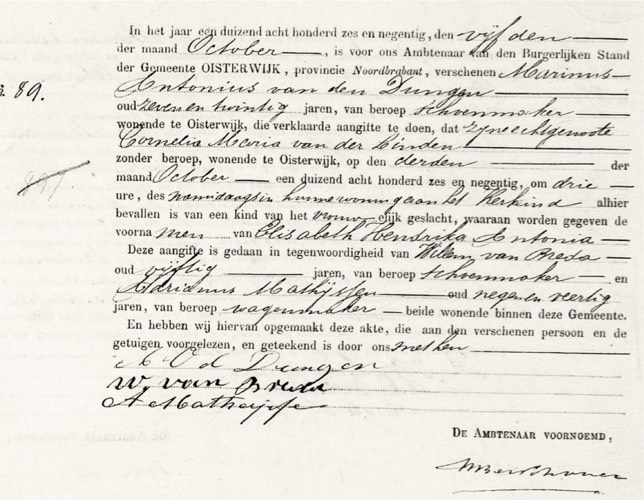 In het jaar een duizend acht honderd zes en negentig, den vijfden
der maand October, is voor ons Ambtenaar van den Burgerlijken Stand
der Gemeente OISTERWIJK, provincie Noordbrabant, verschenen Marinus
89. Antonius van den Dungen
oud zeven en twintig jaren, van beroep schoenmaker
wonende te Oisterwijk, die verklaarde aangifte te doen, dat zijne echtgenoote
Cornelia Maria van der Linden
zonder beroep, wonende te Oisterwijk, op den derden der
maand October een duizend acht honderd zes en negentig, om drie
ure, des namiddags in hunne woning aan het Kerkind alhier
bevallen is van een kind van het vrouwelijk geslacht, waaraan worden gegeven de
voornamen van Elisabeth Hendrika Antonia
Deze aangifte is gedaan in tegenwoordigheid van Willem van Breda
oud vijftig jaren, van beroep schoenmaker en
Adrianus Mathijssen oud negen en veertig
jaren, van beroep wagenmaker beide wonende binnen deze Gemeente.
En hebben wij hiervan opgemaakt deze akte, die aan den verschenen persoon en de
getuigen voorgelezen, en geteekend is door ons met hen
A V d Dungen
W. van Breda
A Mathijsse
DE AMBTENAAR VOORNOEMD,